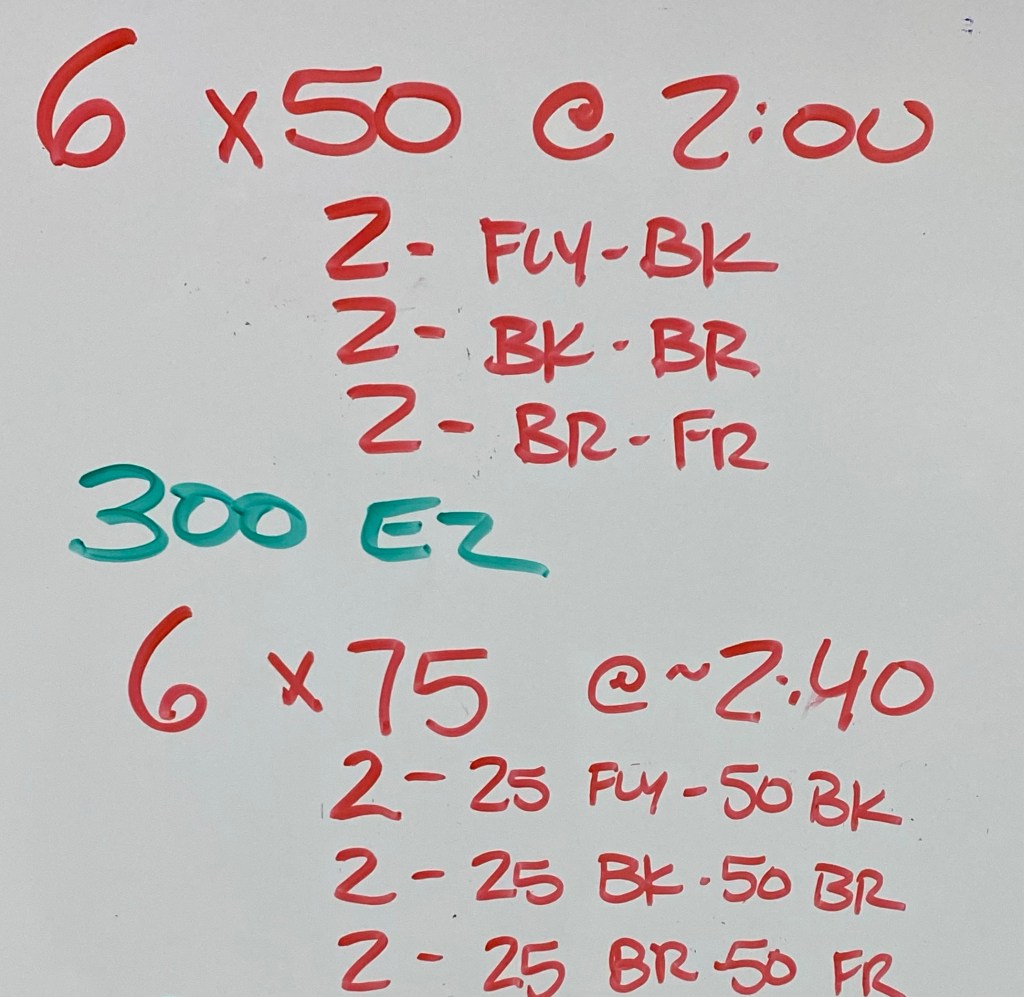 6 x 50 @ 2:00
2 - FLY - BK
2 - BK - BR
2 - BR - FR
300 EZ
6 x 75 @ ~2:40
2 - 25 FLY - 50 BK
2 - 25 BK - 50 BR
2 - 25 BR - 50 FR